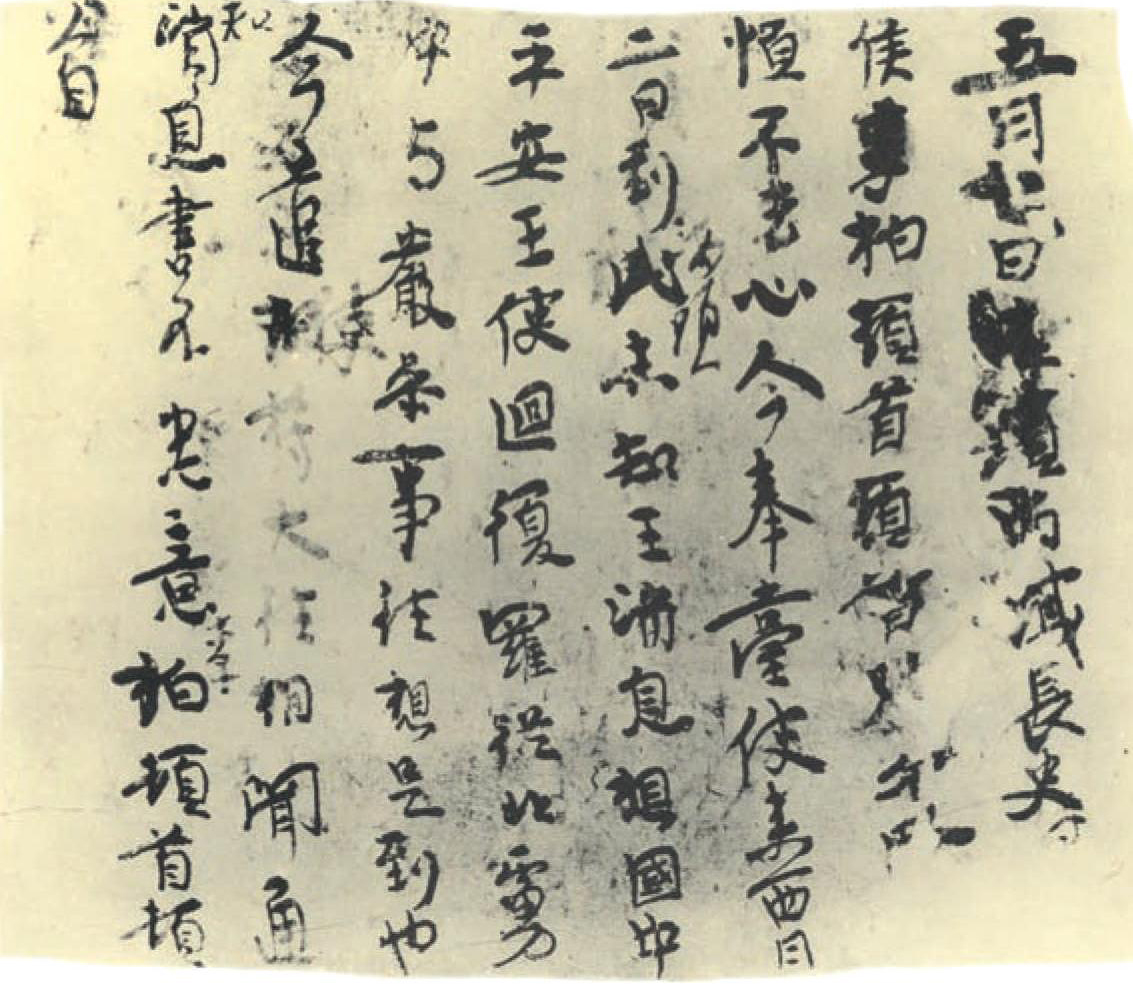 五月七日西域長史
侯李柏頓首頓首別
恒不去心今奉臺使來西月
二日到此海頭未知王消息想國中
平安王使迴復羅從北虜
中与嚴參事往想是到也
今遣苻大往相聞通知
消息書不悉意李柏頓首頓
首